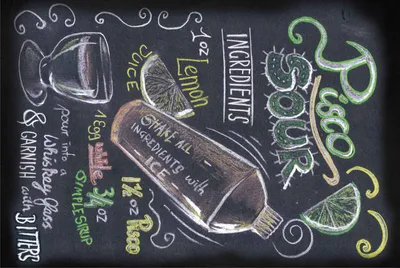 Pisco
SOUR
INGREDIENTS
1 oz
Lemon
JUICE
1 Egg white
3/4 oz
SYMPLE SIRUP
1 1/2 oz Pisco
SHAKE ALL
INGREDIENTS with
ICE
pour into a
Whiskey glass
& GARNISH with BITTERS